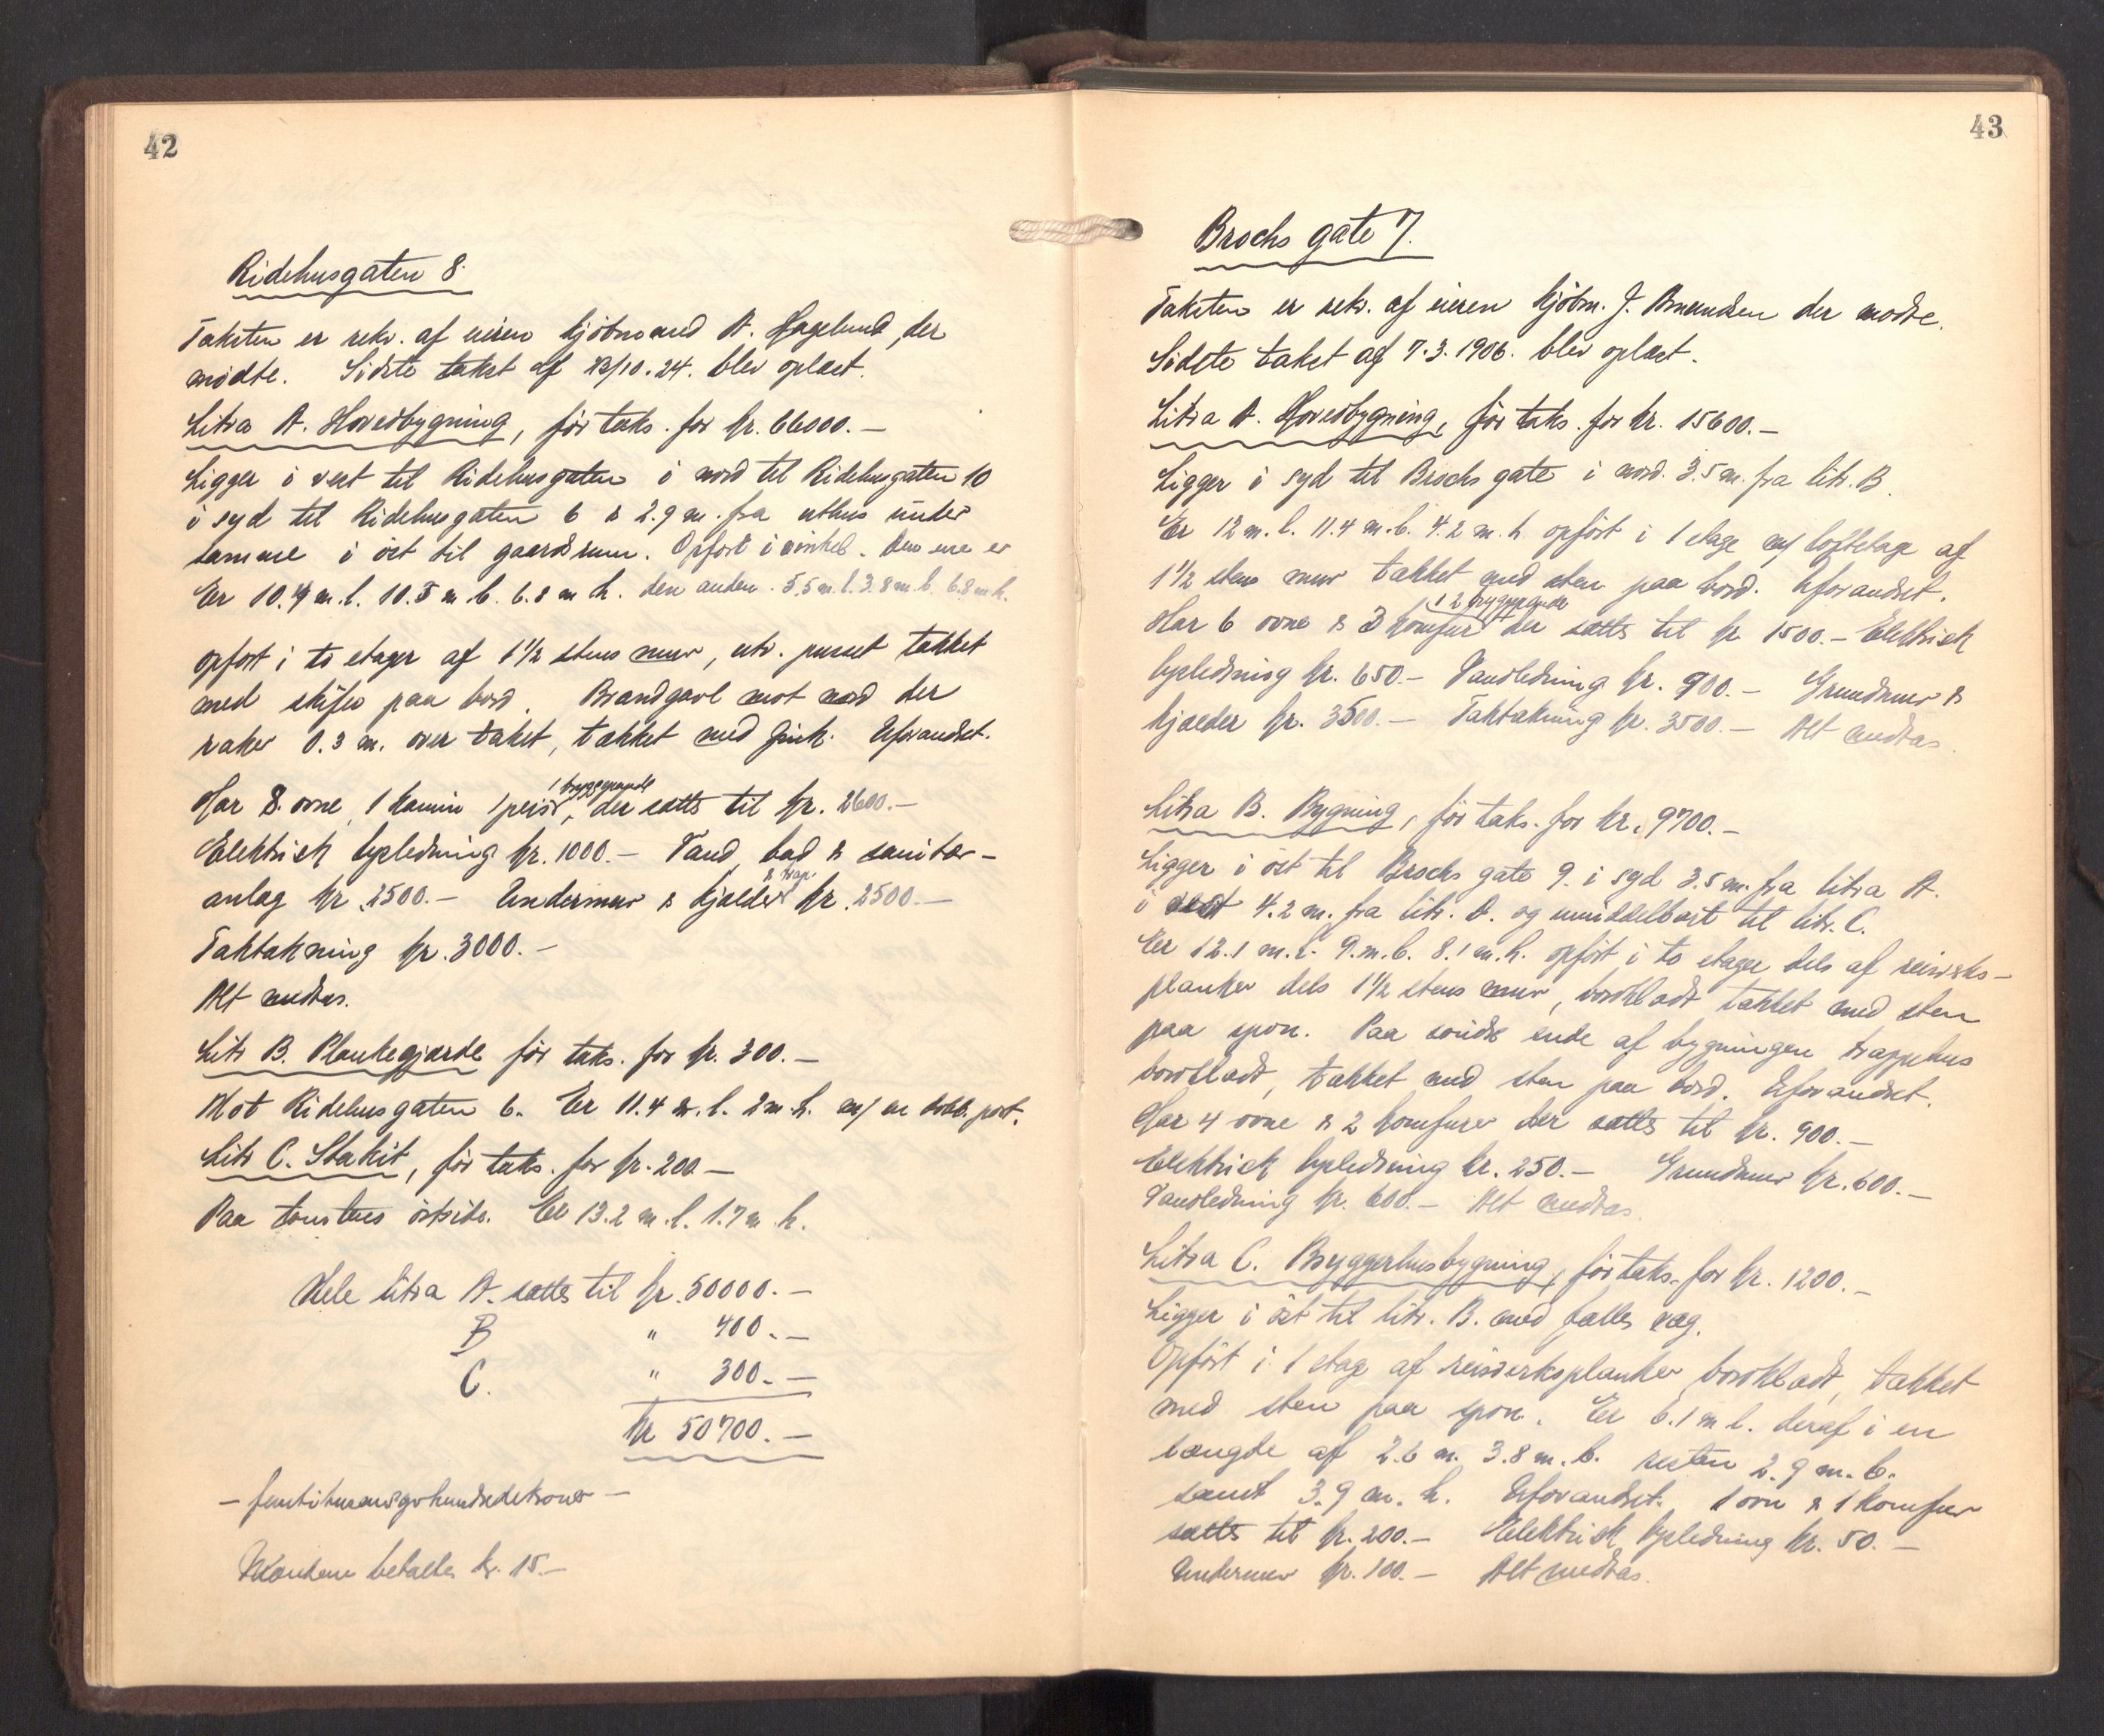 42
Ridehusgaten 8.
Taksten er rekv. af eieren kjöbmand A. Hagelund, der
mödte. Sidste takst af /10.24. blev oplæst.
Litra A. Hovedbygning, för taks. for kr. 66000.—
Ligger i vest til Ridehusgaten i nord til Ridehusgaten 10
i syd til Ridehusgaten 6 & 2.9 m. fra uthus under
samme i öst til gaardsrum. Opfört i vinkel. Den ene er
Er 10.4 m.l. 10.5 m b. 6.8 m h. den anden. 5.5 m.l. 3.8 m.b. 6.8 m h.
opfört i to etager af 1½ stens mur, utv. pusset tækket
med skifer paa bord. Brandgavl mot nord der
raker 0.3 m. over taket, tækket med zink. Uforandret.
1 bryggepande
Har 8 ovne, 1 kamin 1 peis, der sættes til kr. 2600.—
Elektrisk lysledning kr. 1000.— Vand, bad & sanitær-
& trap.
anlæg kr. 2500.— Undermur & kjælder kr. 2500.—
Taktækning kr. 3000.—
Alt medtas.
Litr B. Plankegjærde för taks. for kr. 300.—
Mot Ridehusgaten 6. Er 11.4 m.l. 2 m.h. m/ en dobb. port.
Litr C. Stakit, för taks. for kr. 200.—
Paa tomtens östside. Er 13.2 m.l. 1.7 m h.
Hele litra A. sættes til kr. 50000.—
B " 400.—
C. " 300.—
kr 50700.—
— femtitusensyvhundredekroner —
betaltes kr. 15.—
43
Brochs gate 7.
Taksten er rekv. af eieren kjöbm. J. der mödte.
Sidste takst af 7.3.1906. blev oplæst.
Litra A. Hovedbygning, för taks. for kr. 15600.—
Ligger i syd til Brochs gate i nord. 3.5 m. fra litr. B.
Er 12 m.l. 11.4 m.b. 4.2 m.h opfört i 1 etage m/ loftetage af
1½ stens mur tækket med sten paa bord. Uforandret.
2 bryggepander
Har 6 ovne & 3 komfur der sættes til kr 1500.— Elektrisk
lysledning kr. 650.— Vandledning kr. 900.— Grundmur &
kjælder kr. 3500.— Taktækning kr. 3500.— Alt medtas.
Litra B. Bygning, för taks. for kr. 9700.—
Ligger i öst til Brochs gate 9. i syd 3.5 m. fra litra A.
i vest 4.2 m. fra litr. D. og umiddelbart til litr. C.
Er 12.1 m.l. 9.m.b. 8.1 m.h. opfört i to etager dels af reisverks-
planker dels 1½ stens mur, bordklædt tækket med sten
paa spon. Paa söndre ende af bygningen trappehus
bordklædt, tækket med sten paa bord. Uforandret.
Har 4 ovne & 2 komfurer der sættes til kr. 900.—
Elektrisk lysledning kr. 250.— Grundmur kr. 600.—
Vandledning kr. 600.— Alt medtas.
Litra C. Bryggerhusbygning, för taks. for kr. 1200.—
Ligger i öst til litr. B. med fælles væg.
Opfört i 1 etag af reisverksplanker, bordklædt, tækket
med sten paa spon. Er 6.1 m l. deraf i en
længde af 2.6 m. 3.8 m.b. resten 2.9 m.b.
samt 3.9 m.h. Uforandret. 1 ovn & 1 komfur
sættes til kr. 200.— Elektrisk lysledning kr. 50.—
Undermur kr. 100.— Alt medtas.